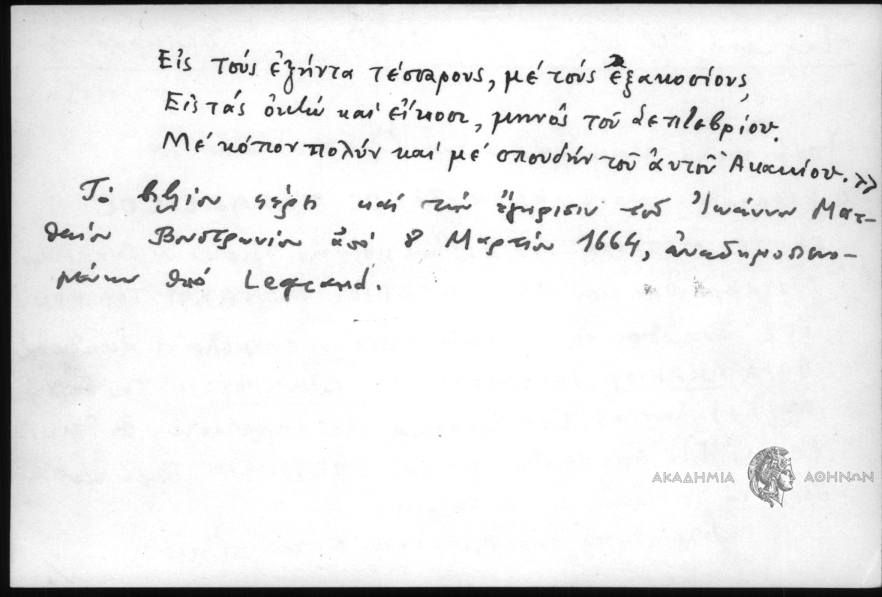 Εἰς τούς ἑξήντα τέσσαρους, μέ τούς ἑξακοσίους,
Εἰς τάς ὀκτώ καί εἴκοσι, μηνός τοῦ Σεπτεβρίου.
Μέ κόπον πολύν καί μέ σπουδήν τοῦ αὐτοῦ Ἀκακίου.»
Τό βιβλίον φέρει καί τήν ἔγκρισιν τοῦ Ἰωάννου Ματ-
θαίου Βουστρωνίου ἀπό 8 Μαρτίου 1664, ἀναδημοσιευο-
μένην ὑπό Legrand.
ΑΚΑΔΗΜΙΑ ΑΘΗΝΩΝ